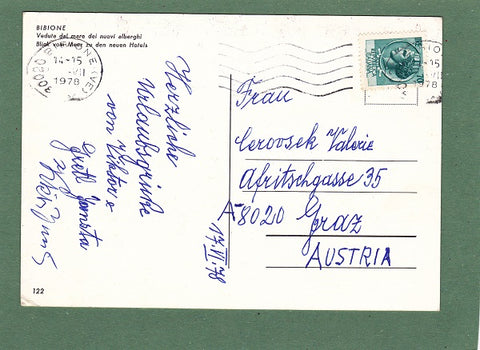 BIBIONE
Vedute dal mare dei nuovi alberghi
Blick vom Meer zu den neuen Hotels
30020 BIBIONE (VE)
14-15
VII
1978
Herzliche
Urlaubsgrüße
von Viktor &
Gretl
Frau
Cerovsek Valerie
Afritschgasse 35
A-8020 Graz
AUSTRIA
17.VII.78
122